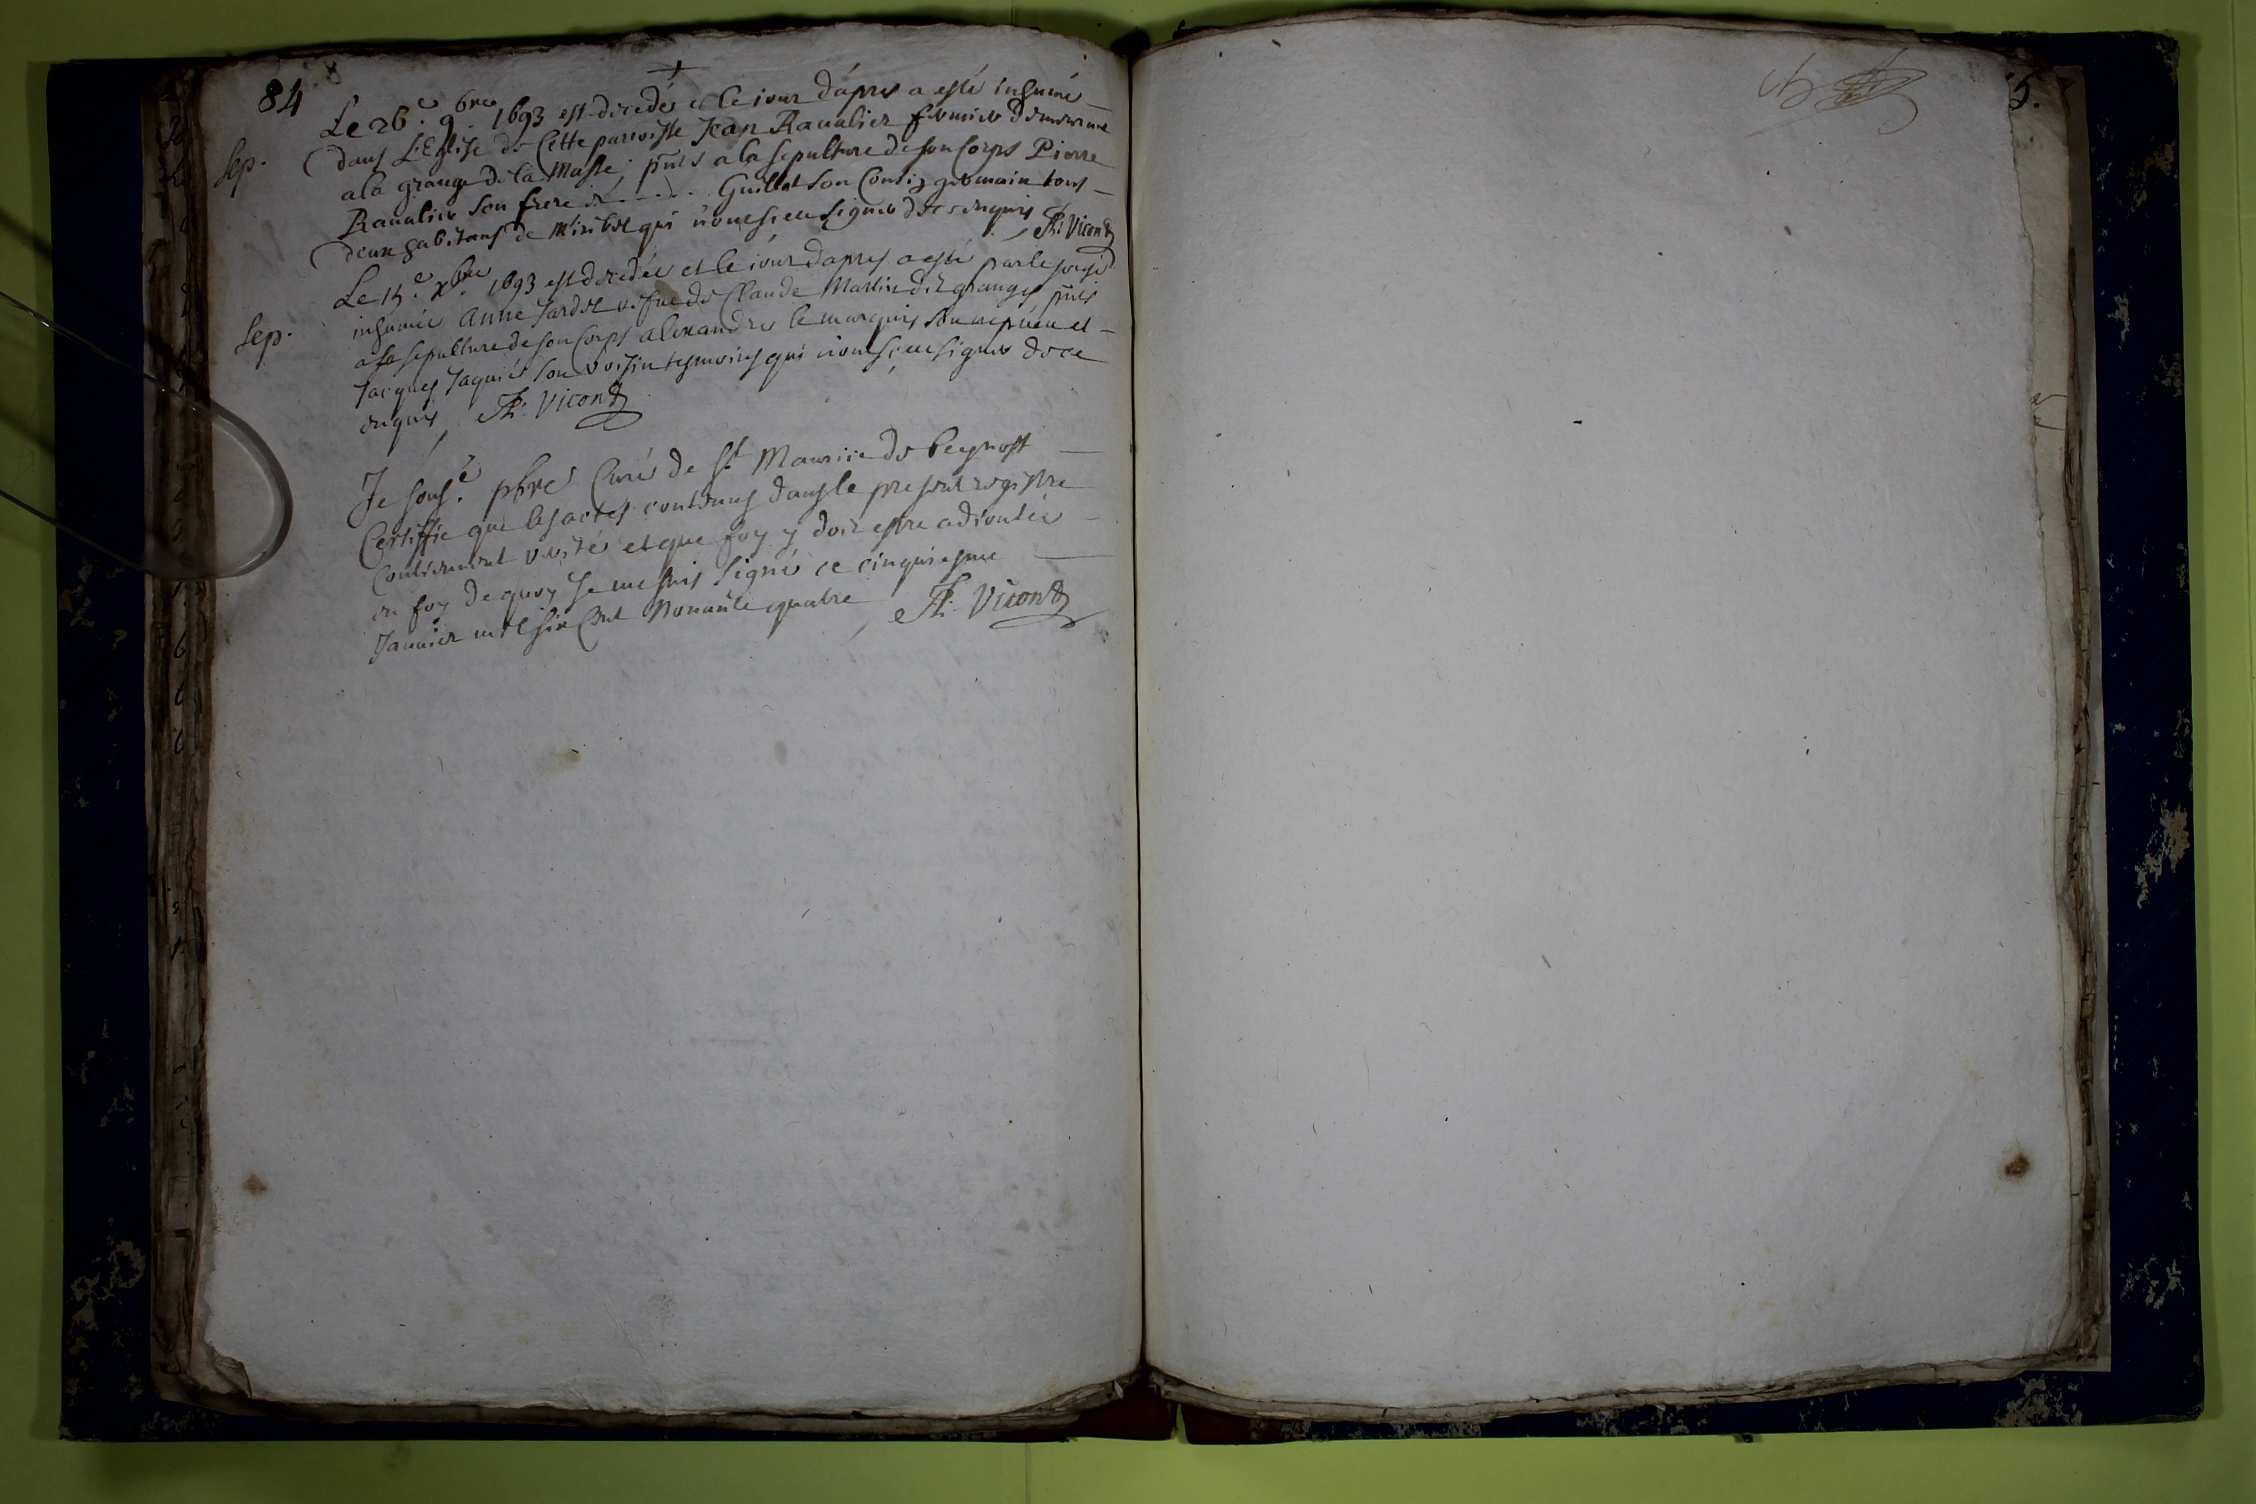 84
Le 26.e 9bre 1693 est decedé et le iour d'apres a esté inhumé
Sep. dans L'Eglise de Cette parroisse Jean Raualier fermier demeurant
a la grange de la Masse, pnts a la sepulture de son Corps Pierre
Raualier son frere et ..... Guillet son Cousin germain tous
deux habitans de Miribel qui n'ont sceu signer de ce enquis
Ph: Vicond
Le 15.e xbre 1693 est decedée et le iour d'apres a esté par le sousé
Sep. inhumée Anne Jardet vefue de Claude Martin dit granges pnts
a la sepulture de son Corps alexandre le marquis son nepueu et
Jacques Jaquié son voisin tesmoins qui n'ont sceu signer de ce
enquis Ph: Vicond
Je sousé. pbre Curé de St Maurice de beynost
Certiffie que les actes contenus dans le present registre
Contiennent verité et que foy y doit estre adioutée
en foy de quoy Je me suis signé ce cinquiesme
Januier mil six Cent Nonante quatre Ph: Vicond
5.